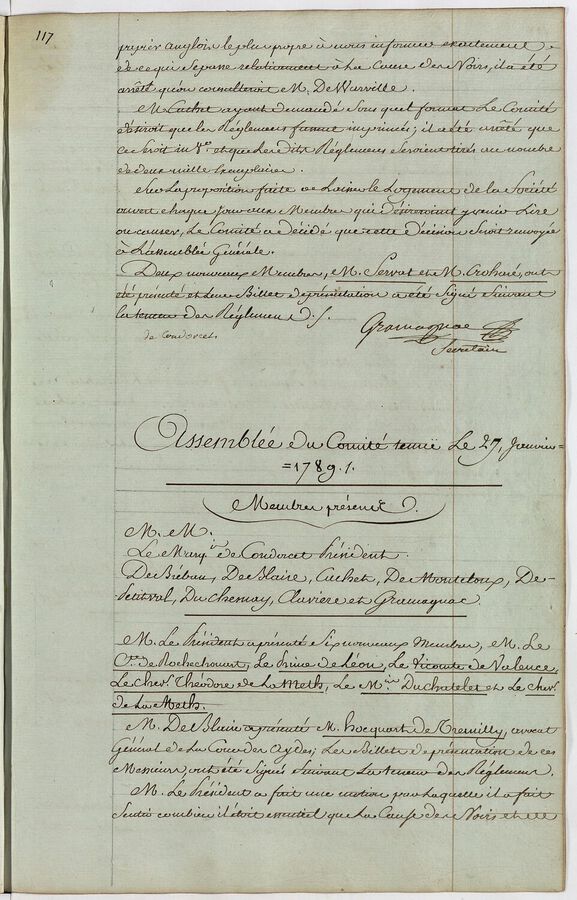 117
papier anglois le plus propre à nous informer exactement
de ce qui se passe relativement à la Cause des Noirs, il a été
arrêté qu'on consulteroit M. De Warville.
M. Cuchet ayant demandé sous quel format Le Comité
désiroit que les Réglemens fussent imprimés; il a été arrêté que
ce seroit in 8.º et que Lesdits Réglemens seroient tirés au nombre
de deux mille Exemplaires.
Sur la proposition faite de Laisser le Logement de la Société
ouvert chaque jour aux Membres qui désireroient y venir Lire
ou causer, Le Comité a décidé que cette décision seroit renvoyée
à L'assemblée Générale.
Deux nouveaux Membres, M. Servat et M. Croharé, ont
été présentés et Leur Billet de présentation a été Signé Suivant
la teneur des Réglemens ./.
Gramagnac
de Condorcet
Secretaire
Assemblée du Comité tenüe Le 27, Janvier=
=1789./.
Membres présens.
M. M.
Le Marq.is de Condorcet Président.
De Bréban, De Blaire, Cuchet, De Montcloux, De-
Petitval, Du Chesnay, Claviere et Gramagnac.
M. Le Président a présenté Six nouveaux Membres, M. Le
C.te de Rochechouart, Le Prince de Léon, Le Vicomte de Valence,
Le Chev.r Théodore de La Meth, Le M.is Du Chatelet et Le Chev.r
de La Meth.
M. De Blaire a présenté M. hocquart de Tremilly, avocat
Général de La Cour des Aydes; Les Billets de présentation de ces
Messieurs, ont été Signés Suivant La teneur des Réglemens.
M. Le Président a fait une motion par Laquelle il a fait
Sentir combien il étoit essentiel que La Cause des Noirs et